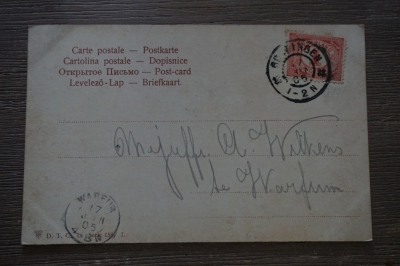 Carte postale — Postkarte
Cartolina postale — Dopisnice
Открытое Письмо — Post-card
Levelező-Lap — Briefkaart.
GRONINGEN
1-2N
Mejuffr. A. Wilkens
te Warfum
WARFUM
D. T. C.